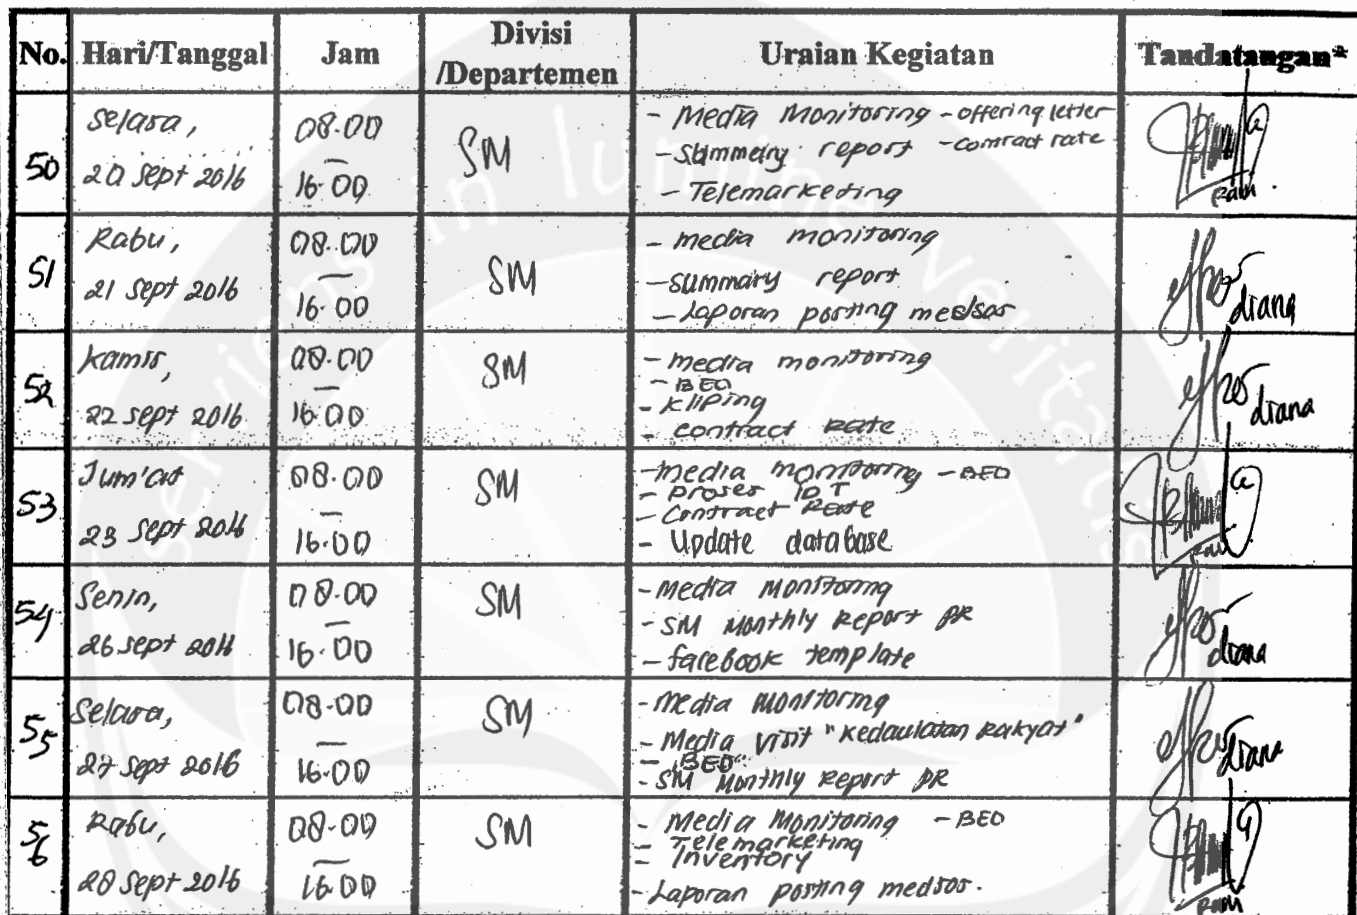 No. Hari/Tanggal Jam Divisi /Departemen Uraian Kegiatan Tandatangan*
50 Selasa, 20 Sept 2016 08.00 – 16.00 SM
- Media Monitoring - offering letter
- Summary report - Contract rate
- Telemarketing
51 Rabu, 21 Sept 2016 08.00 – 16.00 SM
- media monitoring
- summary report
- Laporan posting medsos
diana
52 Kamis, 22 Sept 2016 08.00 – 16.00 SM
- media monitoring
- BEO
- Kliping
- contract Rate
diana
53 Jum'at 23 Sept 2016 08.00 – 16.00 SM
- media monitoring - BEO
- proses IDT
- Contract Rate
- Update database
54 Senin, 26 Sept 2016 08.00 – 16.00 SM
- Media Monitoring
- SM Monthly Report PR
- facebook template
diana
55 Selasa, 27 Sept 2016 08.00 – 16.00 SM
- Media Monitoring
- Media Visit "Kedaulatan Rakyat"
- BEO
- SM Monthly Report PR
diana
56 Rabu, 28 Sept 2016 08.00 – 16.00 SM
- Media Monitoring - BEO
- Telemarketing
- Inventory
- Laporan posting medsos.
serviens in lumine veritatis